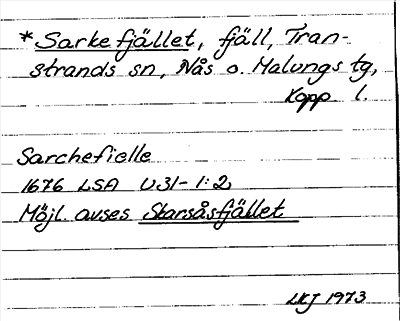 * Sarkefjället, fjäll, Tran-
strands sn, Nås o. Malungs tg,
Kopp l.
Sarchefielle
1676 LSA U31-1:2
Möjl. avses Storsåsfjället
LKJ 1973